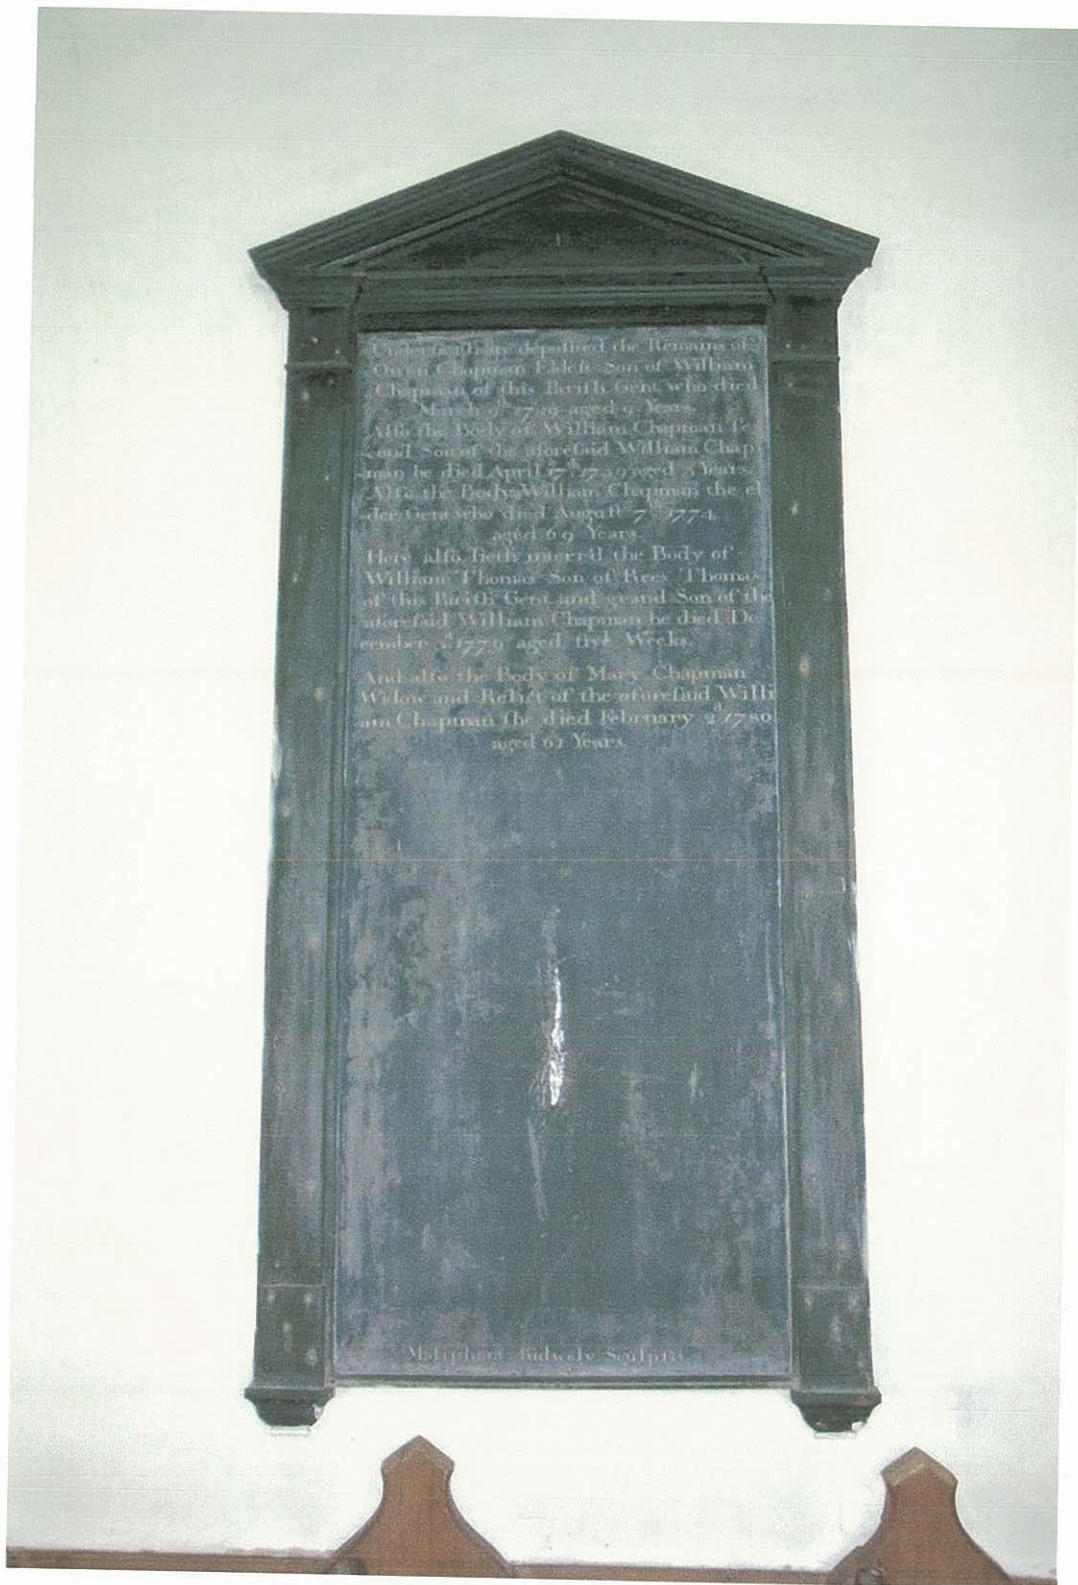 Underneath are deposited the Remains of
Owen Chapman Eldest Son of William
Chapman of this Parish Gent. who died
March 9th aged 9 Years.
Also the Body of William Chapman se
cond Son of the aforesaid William Chap
man he died April 17th aged Years
Also the Body William Chapman the el
der Gent who died August 7th 1774
aged 69 Years.
Here also lieth interr'd the Body of
William Thomas Son of Rees Thomas
of this Parish Gent. and grand Son of the
aforesaid William Chapman he died De
cember 1779 aged five Weeks.
And also the Body of Mary Chapman
Widow and Relict of the aforesaid Willi
am Chapman she died February 2d 1780
aged 62 Years.
Kidwely Sculpsit